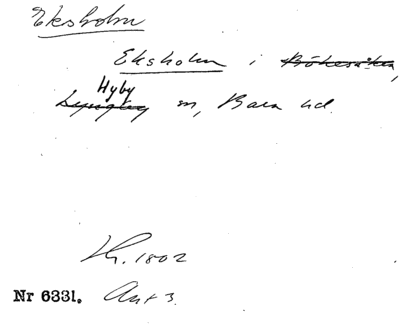 Eksholm
Eksholm i Bökesåkra,
Hyby
Lyngby sn, Bara hd.
Lk. 1802
Nr 6331. Ant 3.